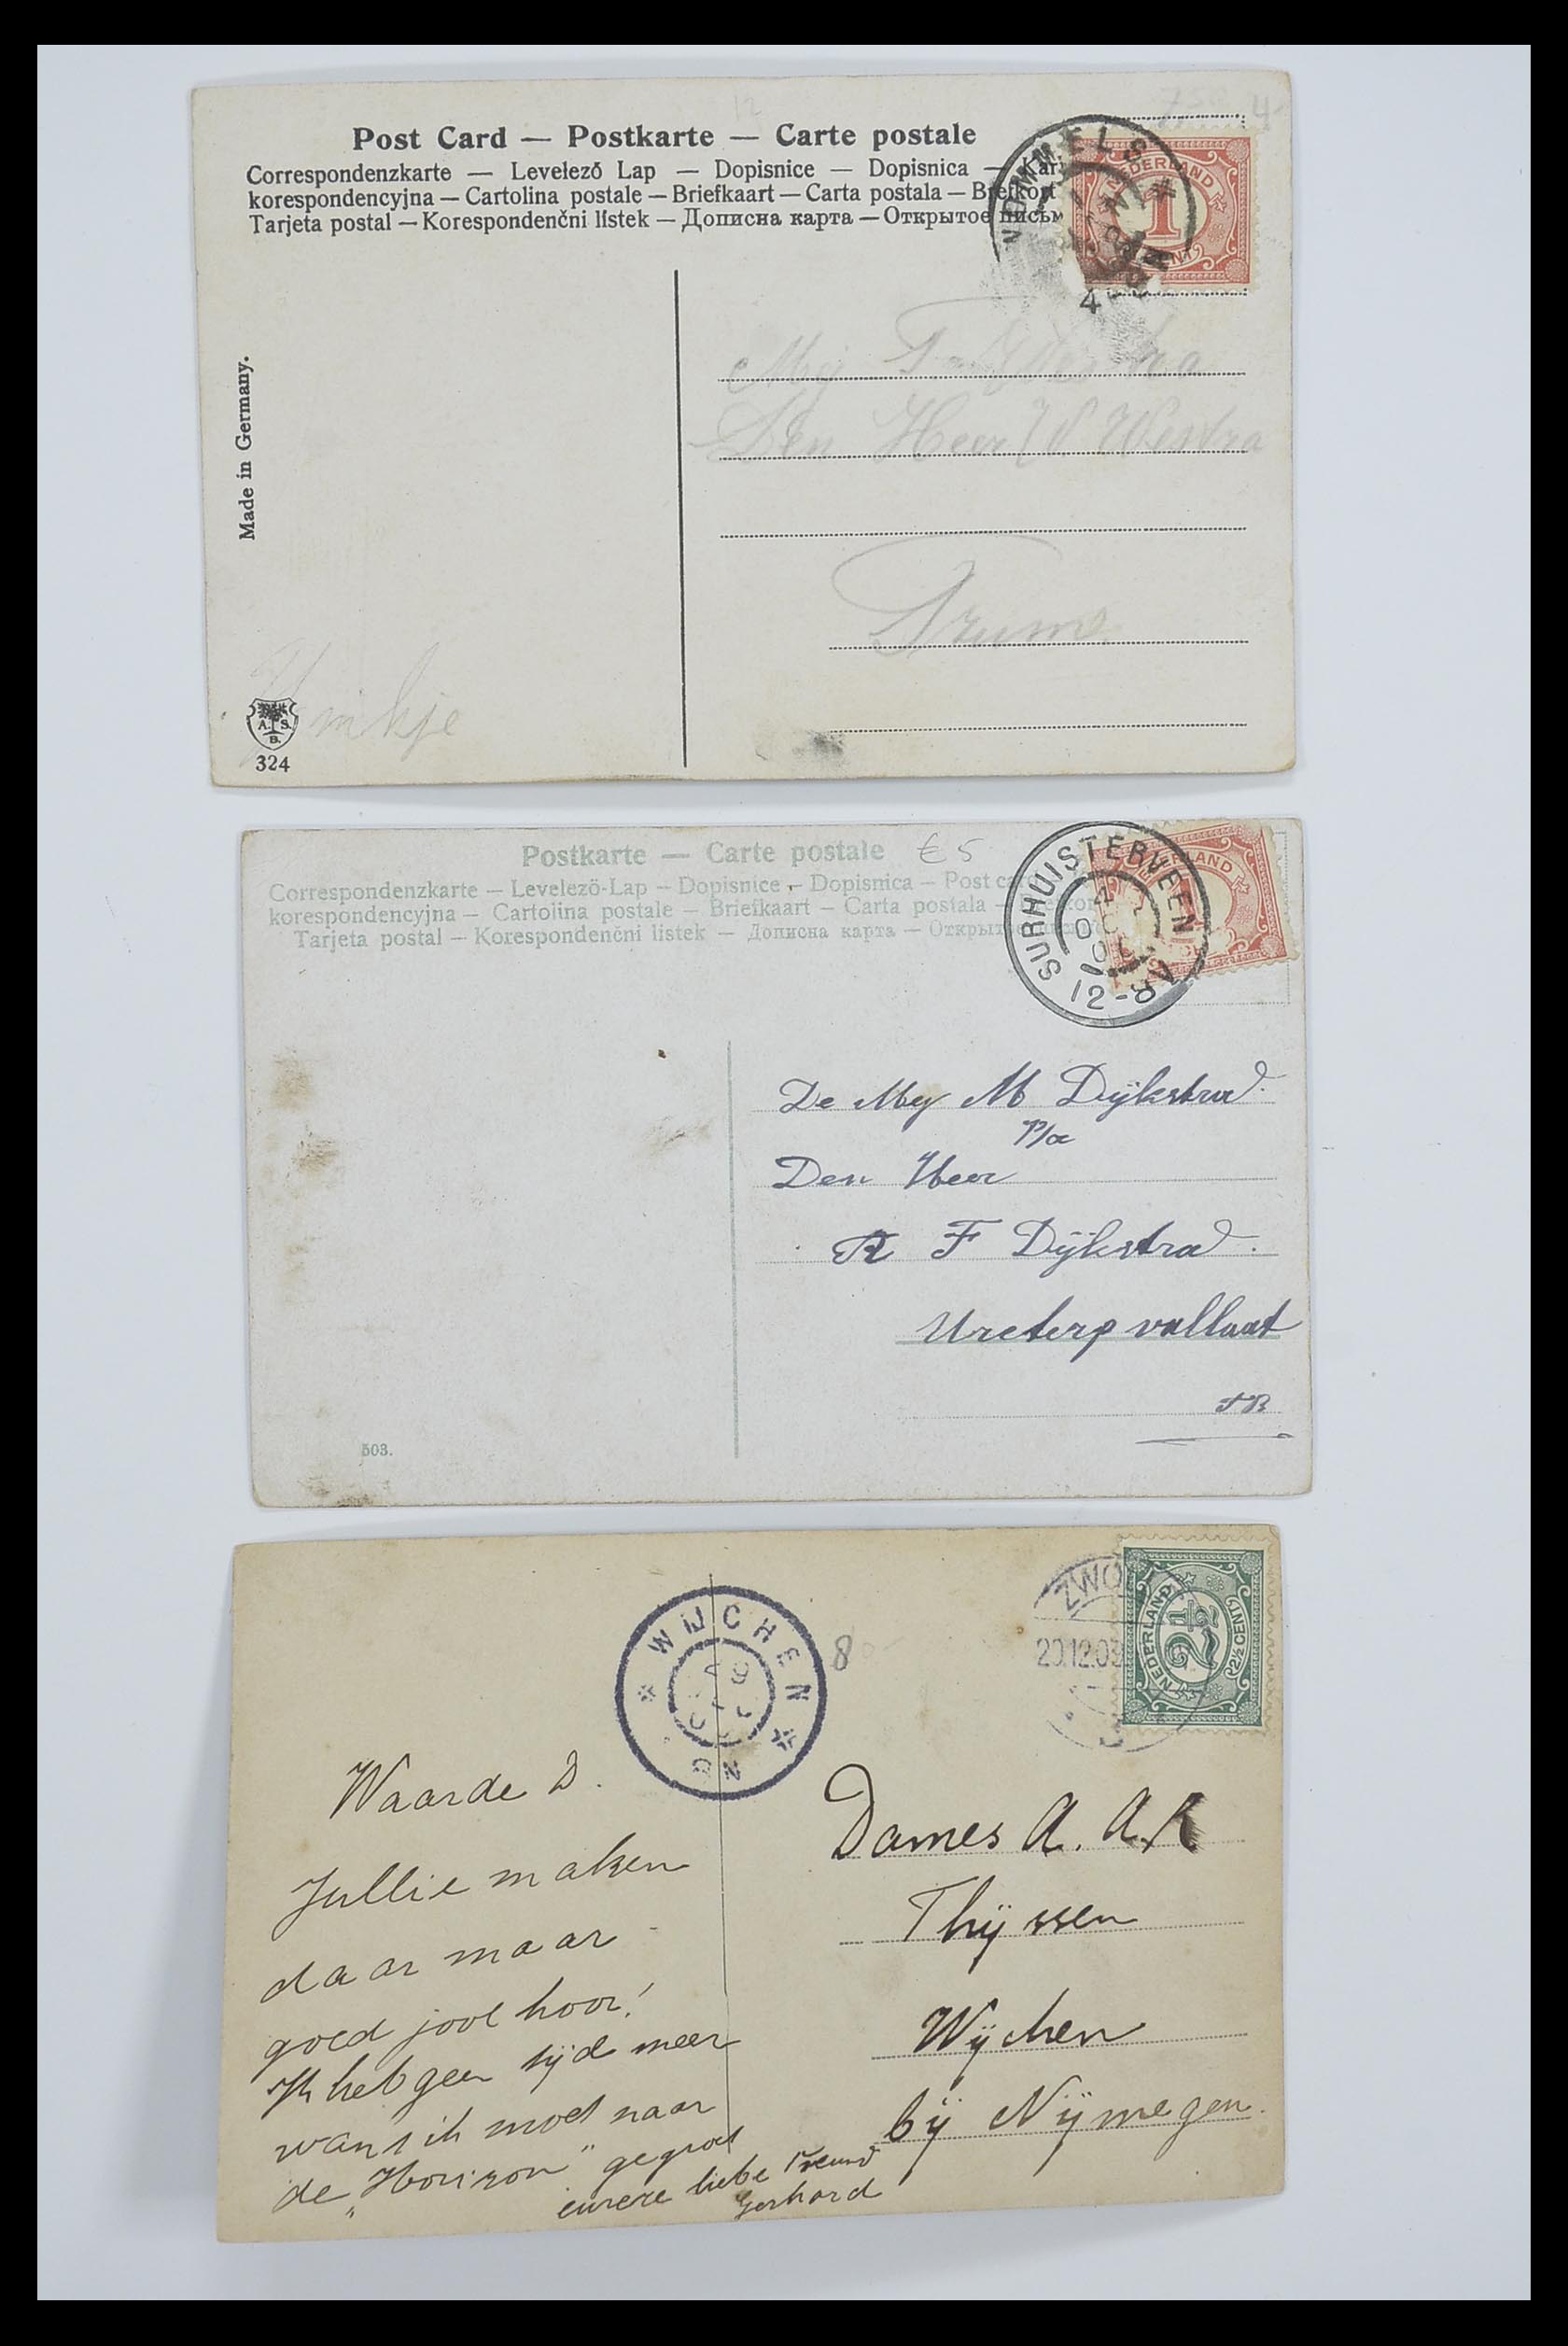 Post Card — Postkarte — Carte postale
Correspondenzkarte — Levelező Lap — Dopisnice — Dopisnica —
korespondencyjna — Cartolina postale — Briefkaart — Carta postala — Brefkort
Tarjeta postal — Korespondenčni lístek — Дописна карта — Открытое письм
NEDERLAND
1
CENT
4
Made in Germany.
Mej
Den Heer W Westra
A. S.
B.
324
Postkarte — Carte postale € 5
Correspondenzkarte — Levelező-Lap — Dopisnice — Dopisnica — Post car
korespondencyjna — Cartolina postale — Briefkaart — Carta postala —
Tarjeta postal — Korespondenčni listek — Дописна карта —
SURHUISTERVEEN
12-8 V
De Mej M Dijkstra
P/a
Den Heer
R F Dijkstra.
Ureterp vallaat
503.
WIJCHEN
ZWO
20.12.0
NEDERLAND
2½
(2½ CENT)
8
Waarde D.
Jullie maken
daar maar
goed jool hoor!
Ik heb geen tijd meer
want ik moet naar
de „Horizon" gegroet
eurere liebe Freund
Gerhard
Dames A. A.
Thijssen
Wijchen
bij Nijmegen.